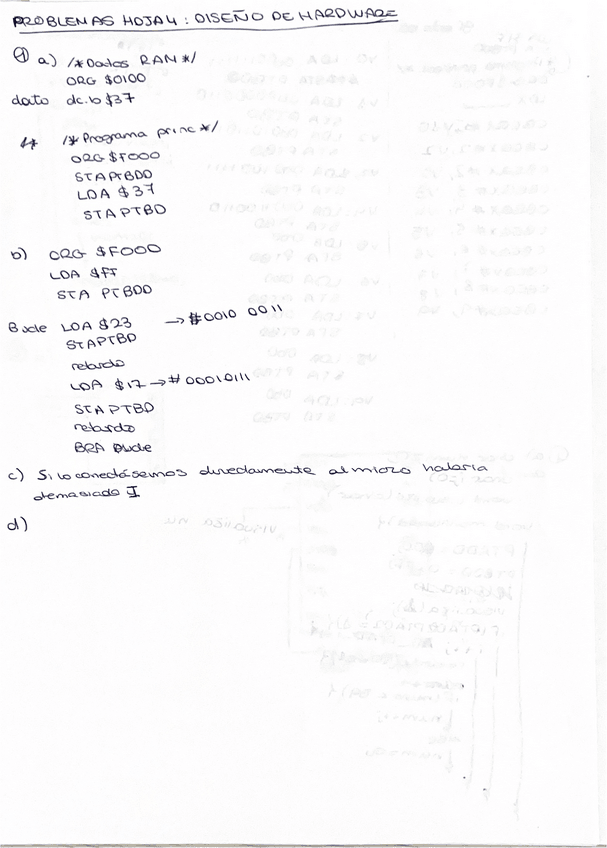 PROBLEMAS HOJA 4 : DISEÑO DE HARDWARE
① a) /* Datos RAM */
ORG $0100
dato dc.b $37
/* Programa princ */
ORG $F000
STA PTBDD
LDA $37
STA PTBD
b) ORG $F000
LDA $FF
STA PTBDD
Bucle LDA $23 → #0010 0011
STA PTBD
retardo
LDA $17 → #00010111
STA PTBD
retardo
BRA Bucle
c) Si lo conectásemos directamente al micro habría
demasiada I.
d)